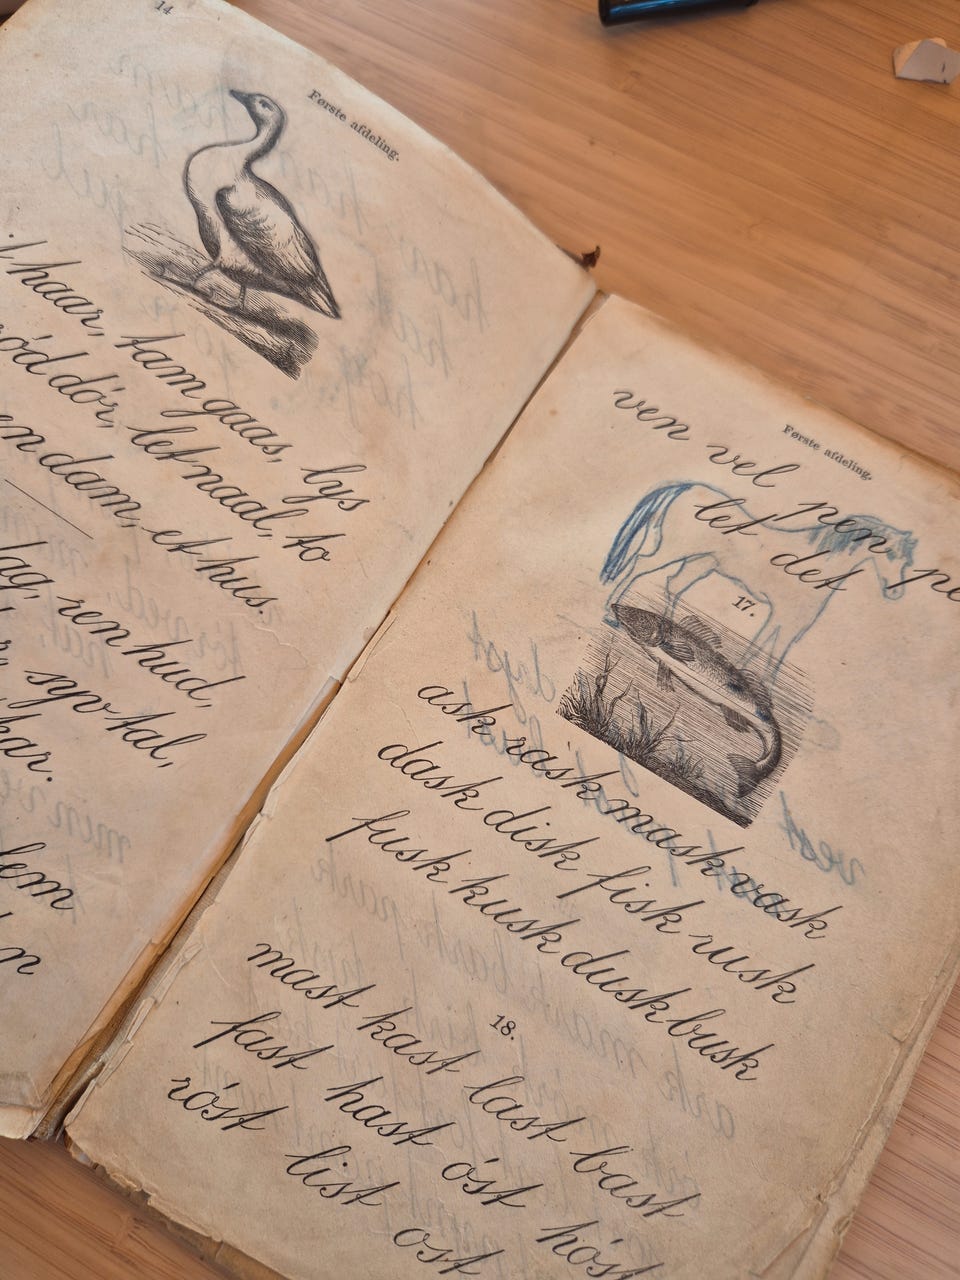 14
Første afdeling.
haar, tam gaas, lys
ród dór, let naal, to
en dam, et hus.
ren hud,
syv tal,
Første afdeling.
ven vel pen
let det
17.
ask rask mask vask
dask disk fisk rusk
fusk kusk dusk busk
18.
mast kast last bast
fast hast óst hóst
róst list ost